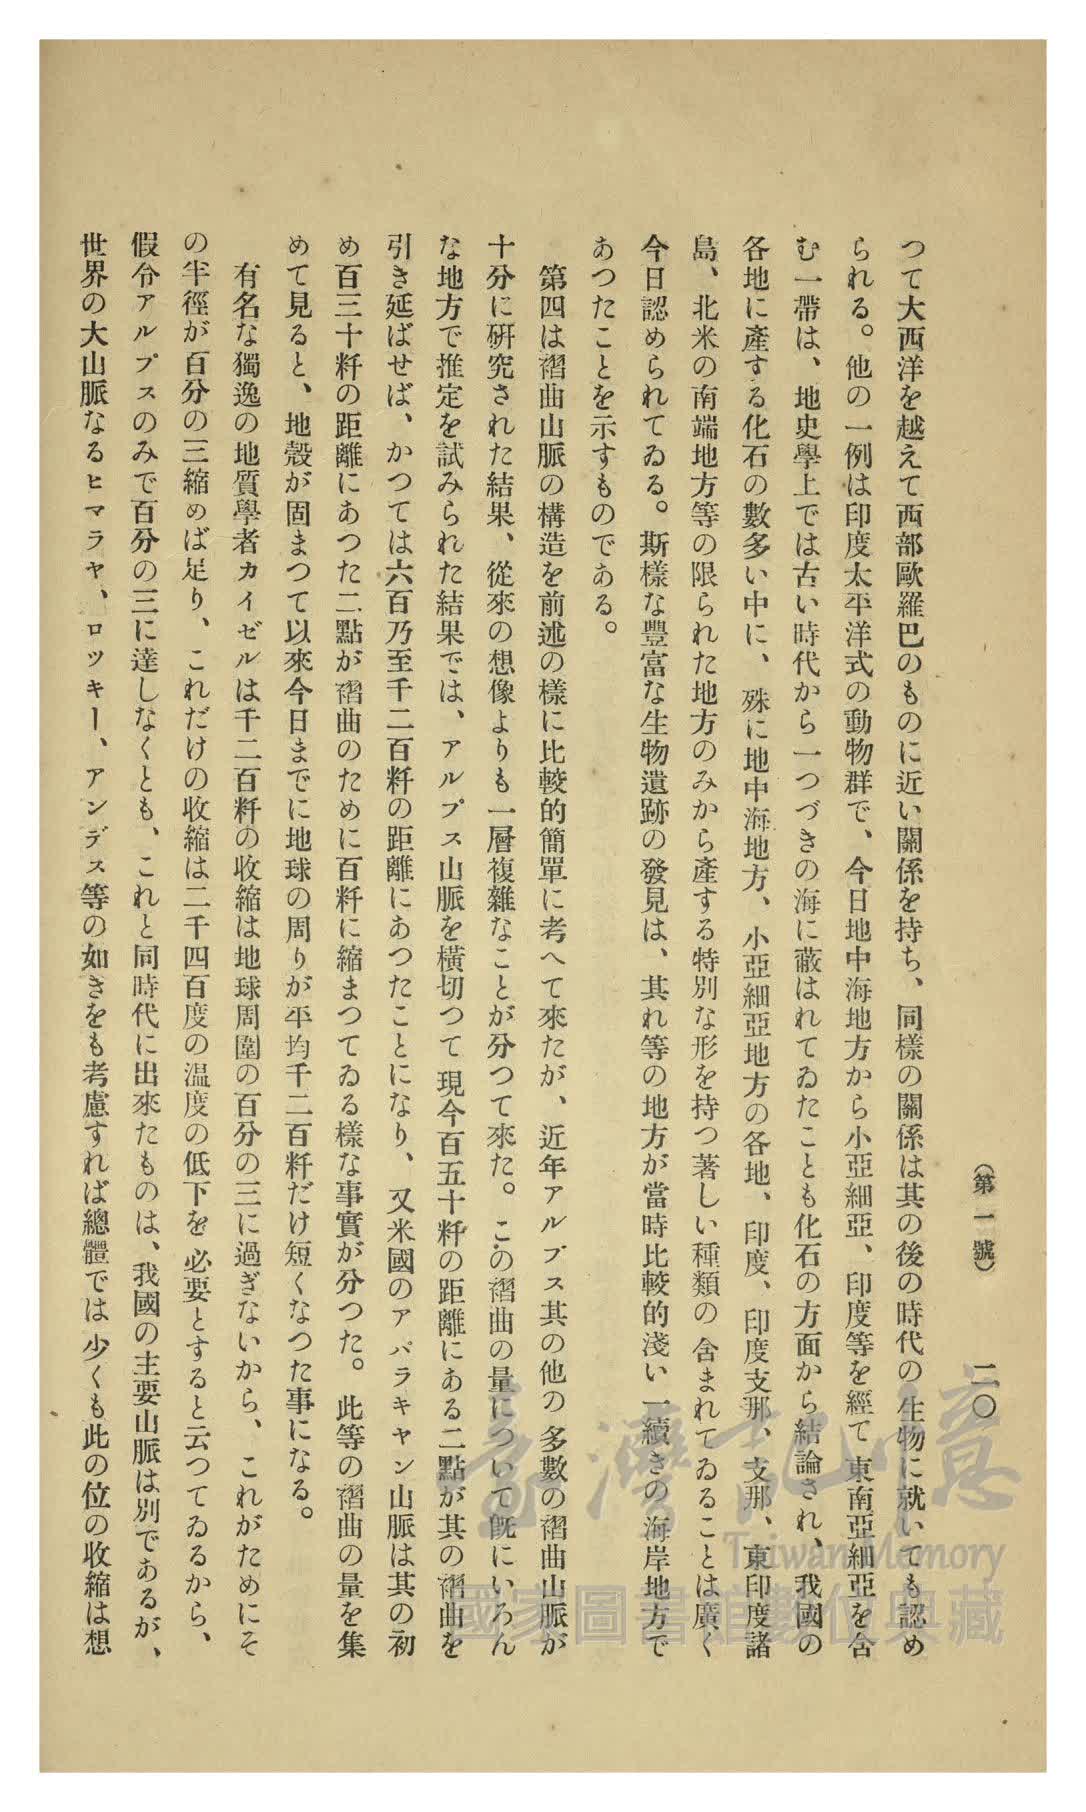 （第一號）　二〇
つて大西洋を越えて西部歐羅巴のものに近い關係を持ち、同樣の關係は其の後の時代の生物に就いても認め
られる。他の一例は印度太平洋式の動物群で、今日地中海地方から小亞細亞、印度等を經て東南亞細亞を含
む一帶は、地史學上では古い時代から一つづきの海に蔽はれてゐたことも化石の方面から結論され、我國の
各地に產する化石の數多い中に、殊に地中海地方、小亞細亞地方の各地、印度、印度支那、支那、東印度諸
島、北米の南端地方等の限られた地方のみから產する特別な形を持つ著しい種類の含まれてゐることは廣く
今日認められてゐる。斯樣な豐富な生物遺跡の發見は、其れ等の地方が當時比較的淺い一續きの海岸地方で
あつたことを示すものである。
第四は褶曲山脈の構造を前述の樣に比較的簡單に考へて來たが、近年アルプス其の他の多數の褶曲山脈が
十分に硏究された結果、從來の想像よりも一層複雜なことが分つて來た。この褶曲の量について旣にいろん
な地方で推定を試みられた結果では、アルプス山脈を橫切つて現今百五十粁の距離にある二點が其の褶曲を
引き延ばせば、かつては六百乃至千二百粁の距離にあつたことになり、又米國のアパラキヤン山脈は其の初
め百三十粁の距離にあつた二點が褶曲のために百粁に縮まつてゐる樣な事實が分つた。此等の褶曲の量を集
めて見ると、地殼が固まつて以來今日までに地球の周りが平均千二百粁だけ短くなつた事になる。
有名な獨逸の地質學者カイゼルは千二百粁の收縮は地球周圍の百分の三に過ぎないから、これがためにそ
の半徑が百分の三縮めば足り、これだけの收縮は二千四百度の溫度の低下を必要とすると云つてゐるから、
假令アルプスのみで百分の三に達しなくとも、これと同時代に出來たものは、我國の主要山脈は別であるが、
世界の大山脈なるヒマラヤ、ロツキー、アンデス等の如きをも考慮すれば總體では少くも此の位の收縮は想
臺灣記憶
Taiwan Memory
國家圖書館數位典藏